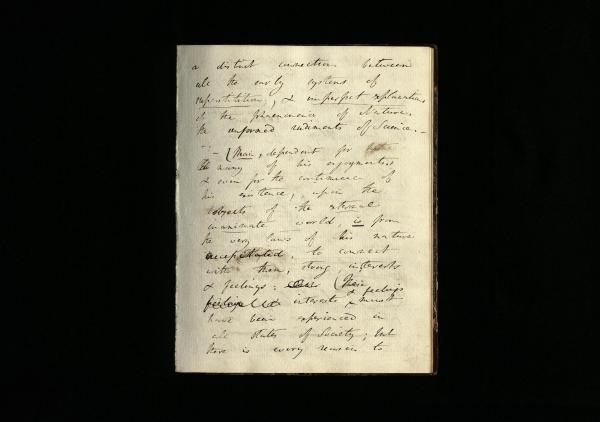 a distinct connection between
all the early systems of
superstition, & imperfect explanations
of the phaenomena of Nature,
the unformed rudiments of Science. –
– (Man, dependent for
the many of his enjoyments
& even for the continuance of
his existence, upon the
objects of the external
inanimate world, is from
the very laws of his nature
necessitated, to connect
with them, strong interests
& feelings: (Their
interests & feelings must
have been experienced in
all states of Society; but
there is every reason to